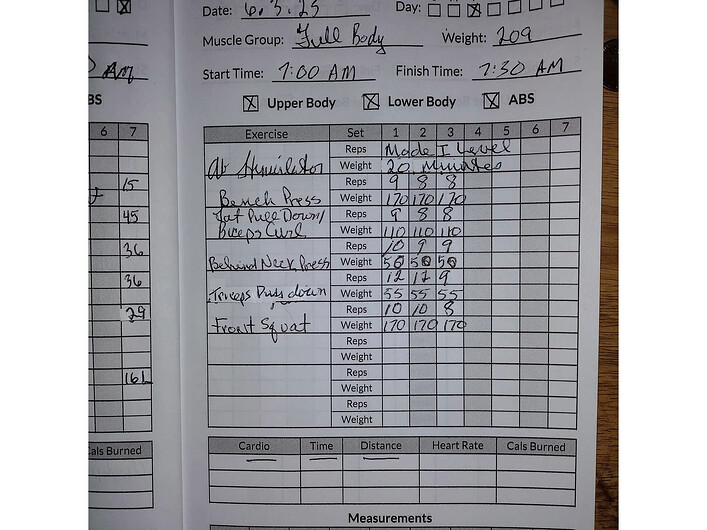 Date: 6.3.23 Day:
Muscle Group: Full Body Weight: 209
Start Time: 7:00 AM Finish Time: 7:30 AM
Upper Body Lower Body ABS
Exercise Set 1 2 3 4 5 6 7
Reps Made I Level
Ab Stimulator Weight 20 Minutes
Reps 9 8 8
Bench Press Weight 170 170 170
Lat Pull Down/ Reps 9 8 8
Biceps Curl Weight 110 110 110
Reps 10 9 9
Behind Neck Press Weight 50 50 50
Reps 12 12 9
Triceps Push down Weight 55 55 55
Reps 10 10 8
Front Squat Weight 170 170 170
Reps
Weight
Reps
Weight
Reps
Weight
Cardio Time Distance Heart Rate Cals Burned
Measurements
AM
BS
6 7
15
45
36
36
29
Cals Burned